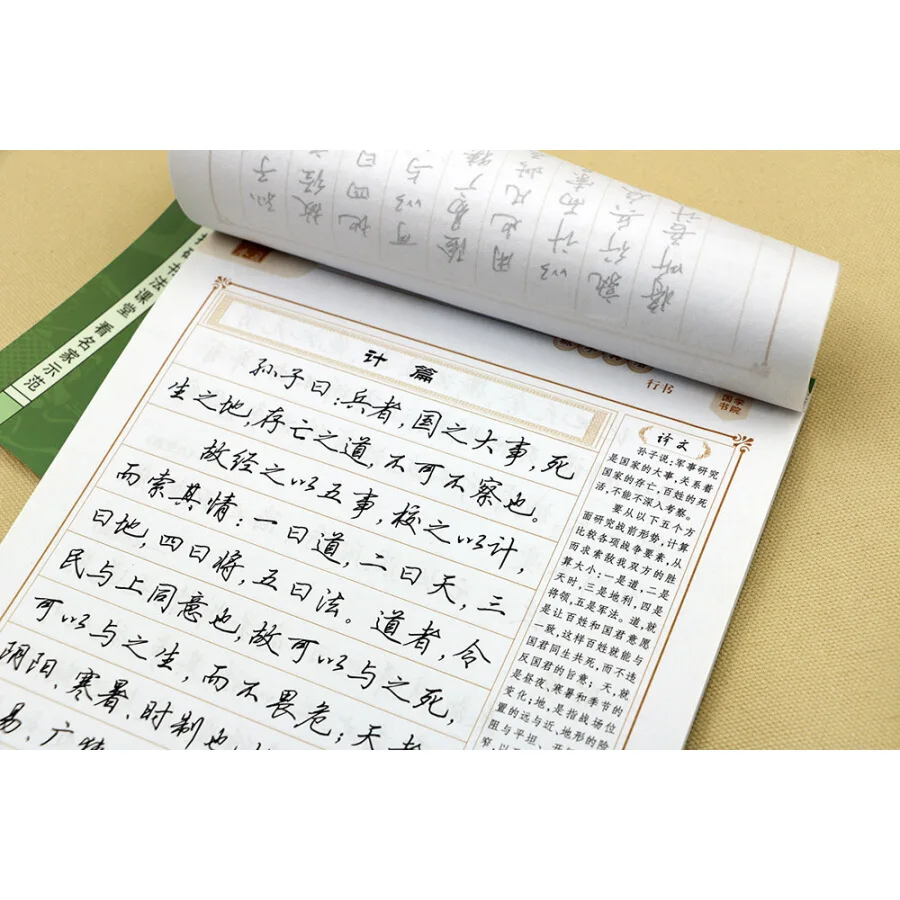 书法课堂 看名家示范
行书
国学
书院
计篇
孙子曰：兵者，国之大事，死
生之地，存亡之道，不可不察也。
故经之以五事，校之以计，
而索其情：一曰道，二曰天，三
曰地，四曰将，五曰法。道者，令
民与上同意也，故可以与之死，
可以与之生，而不畏危；天者
阴阳、寒暑、时制也
易、广狭
译文
孙子说：军事研究
是国家的大事，关系着
国家的存亡，百姓的死
活，不能不深入考察。
要从以下五个方
面研究战前形势，计算
比较各项战争要素，从
而求索敌我双方的胜
算大小：一是道，二是
天时，三是地利，四是
将领，五是军法。道，就
是让百姓和国君意愿
一致，这样百姓就能与
国君同生共死，而不违
反国君的旨意；天，就
是昼夜、寒暑和季节的
变化；地，是指战场位
置的远与近、地形的险
阻与平坦、开
窄，以